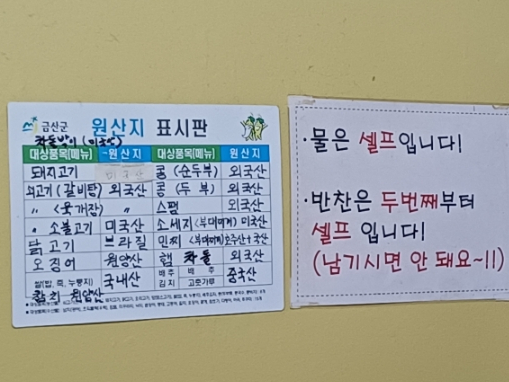 금산군 원산지 표시판
차돌박이 (미국산)
대상품목(메뉴) 원산지 대상품목(메뉴) 원산지
돼지고기 콩 (순두부) 외국산
쇠고기 (갈비탕) 외국산 콩 (두부) 외국산
〃 〈육개장〉 〃 스팸 외국산
〃 소불고기 미국산 소세지 (부대찌개) 미국산
닭고기 브라질 민찌 (부대찌개) 호주산 + 국산
오징어 원양산 햄 차돌 외국산
쌀(밥, 죽, 누룽지) 국내산 배추김치 배추 고춧가루 중국산
참치 원양산
·물은 셀프입니다!
·반찬은 두번째부터
셀프 입니다!
(남기시면 안 돼요~!!)